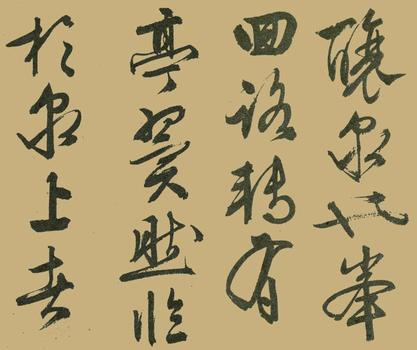 釀泉也峯
回路轉有
亭翼然臨
於泉上者